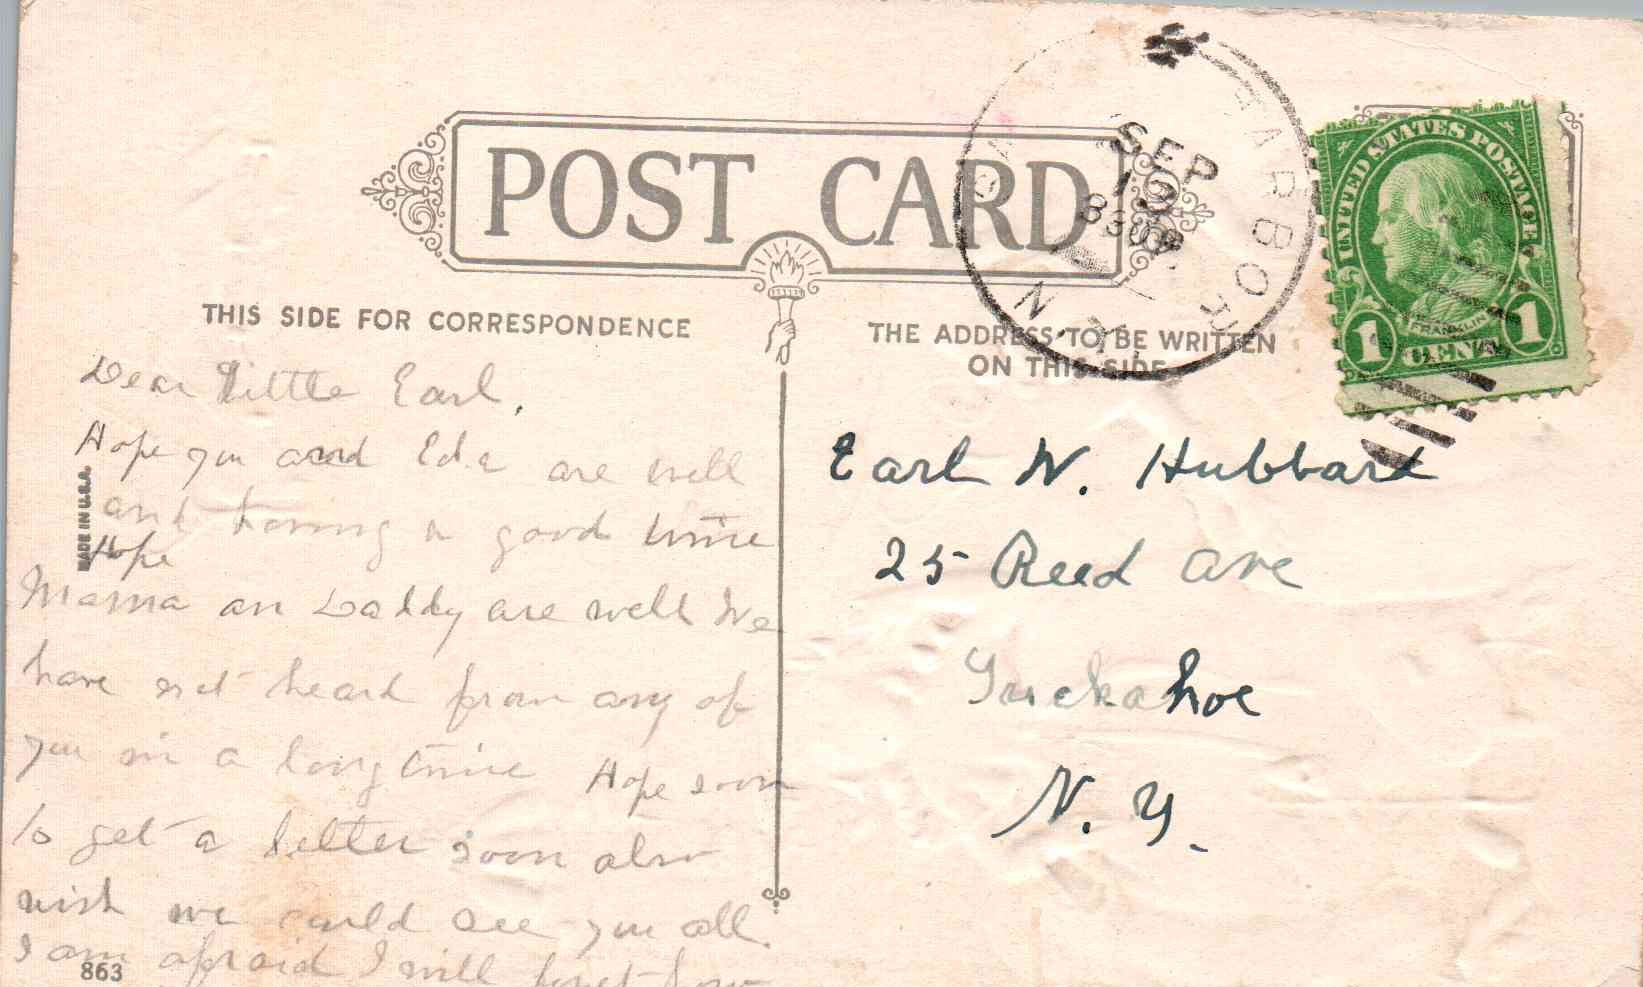 POST CARD
THIS SIDE FOR CORRESPONDENCE
THE ADDRESS TO BE WRITTEN
ON THIS SIDE
SEP
13
830P
HARBOR
N.Y.
UNITED STATES POSTAGE
FRANKLIN
1 CENT 1
MADE IN U.S.A.
Dear Little Earl,
Hope you and Eda are well
and having a good time
Hope
Mama an Daddy are well We
have not heard from any of
you in a long time Hope soon
to get a letter soon also
wish we could see you all.
I am afraid I will forget how
863
Earl W. Hubbard
25 Reed Ave
Tuckahoe
N. Y.